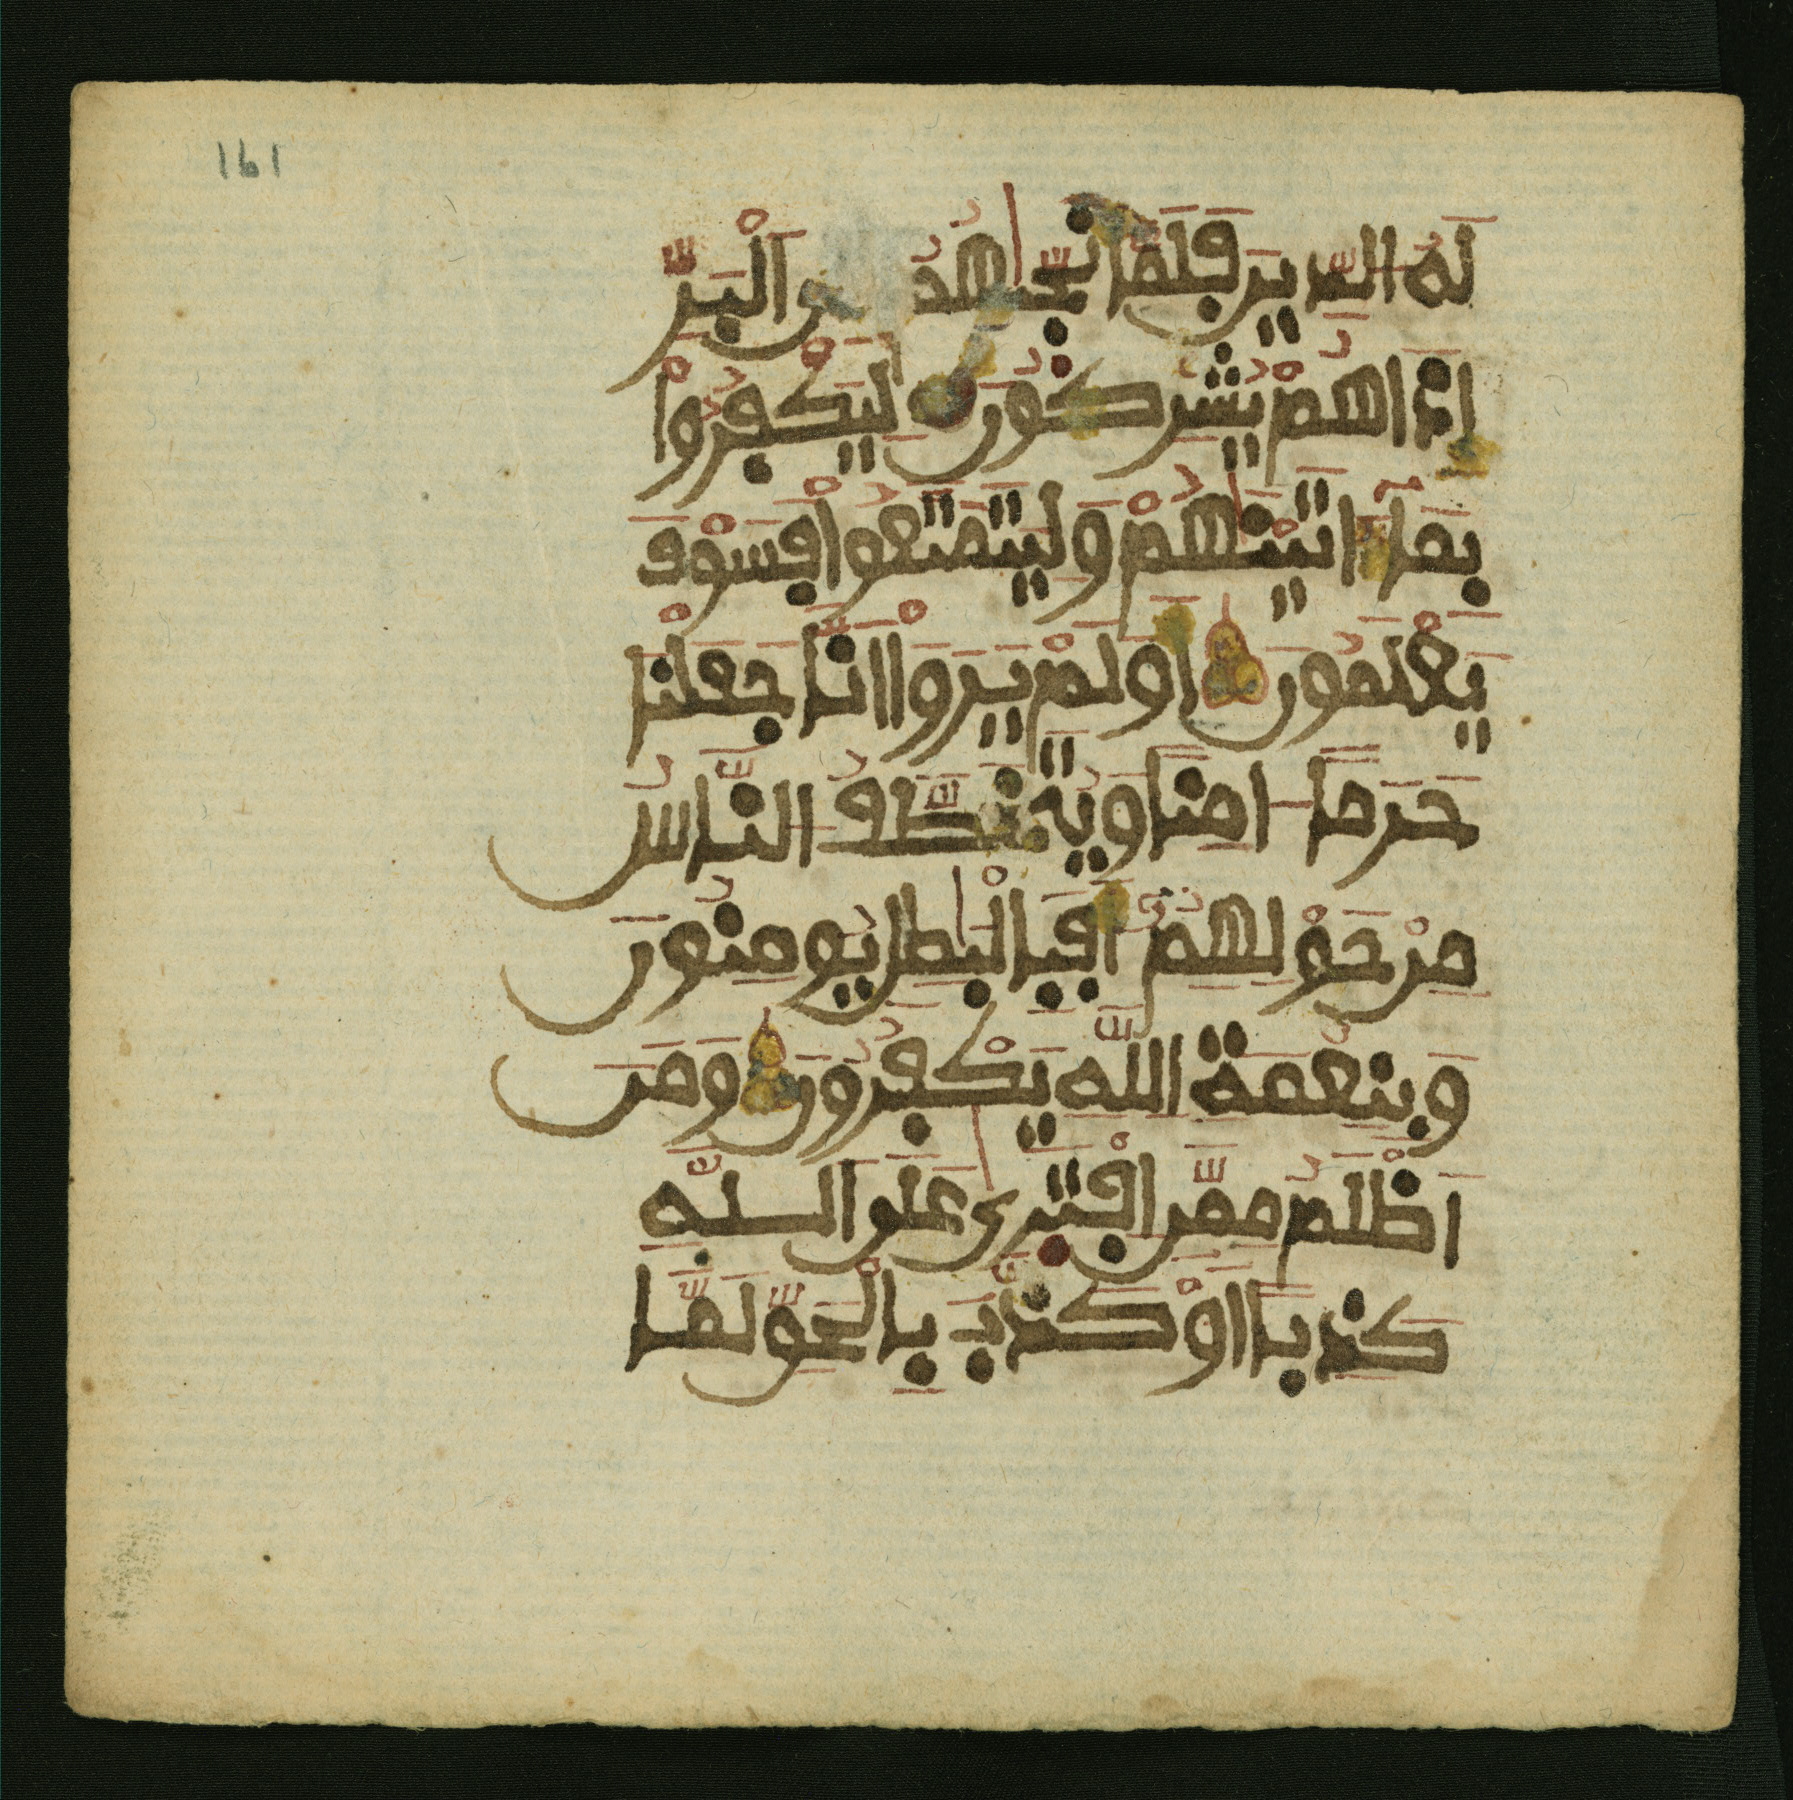 161
لَهُ الدِّينَ فَلَمَّا نَجَّىٰهُمُ إِلَى الْبَرِّ
إِذَا هُمْ يُشْرِكُونَ لِيَكْفُرُواْ
بِمَآ ءَاتَيْنَٰهُمْ وَلْيَتَمَتَّعُواْ فَسَوْفَ
يَعْلَمُونَ أَوَلَمْ يَرَوْاْ أَنَّا جَعَلْنَا
حَرَمًا ءَامِنًا وَيُتَخَطَّفُ النَّاسُ
مِنْ حَوْلِهِمُ أَفَبِالْبَٰطِلِ يُومِنُونَ
وَبِنِعْمَةِ اللَّهِ يَكْفُرُونَ وَمَنَ
اَظْلَمُ مِمَّنِ افْتَرَىٰ عَلَى اللَّهِ
كَذِبًا اَوْ كَذَّبَ بِالْحَقِّ لَمَّا